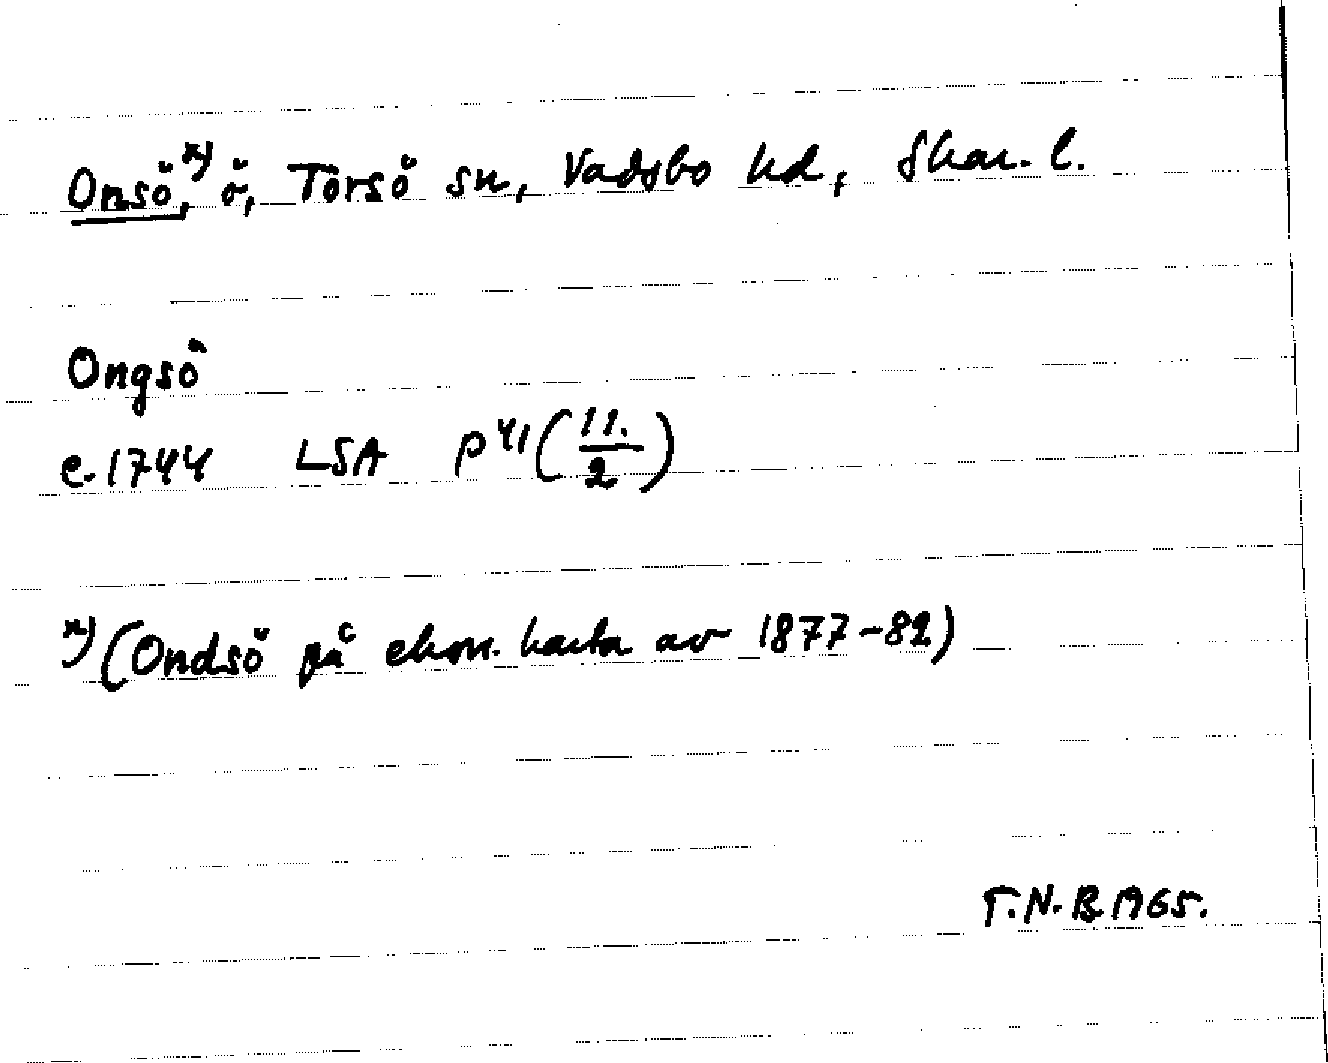 Onsö,ˣ⁾ ö, Torsö sn, Vadsbo hd, Skar. l.
Ongsö
c. 1744 LSA P 41 (11./2)
ˣ⁾ (Ondsö på ekon. karta av 1877-82)
T.N.B. 1965.